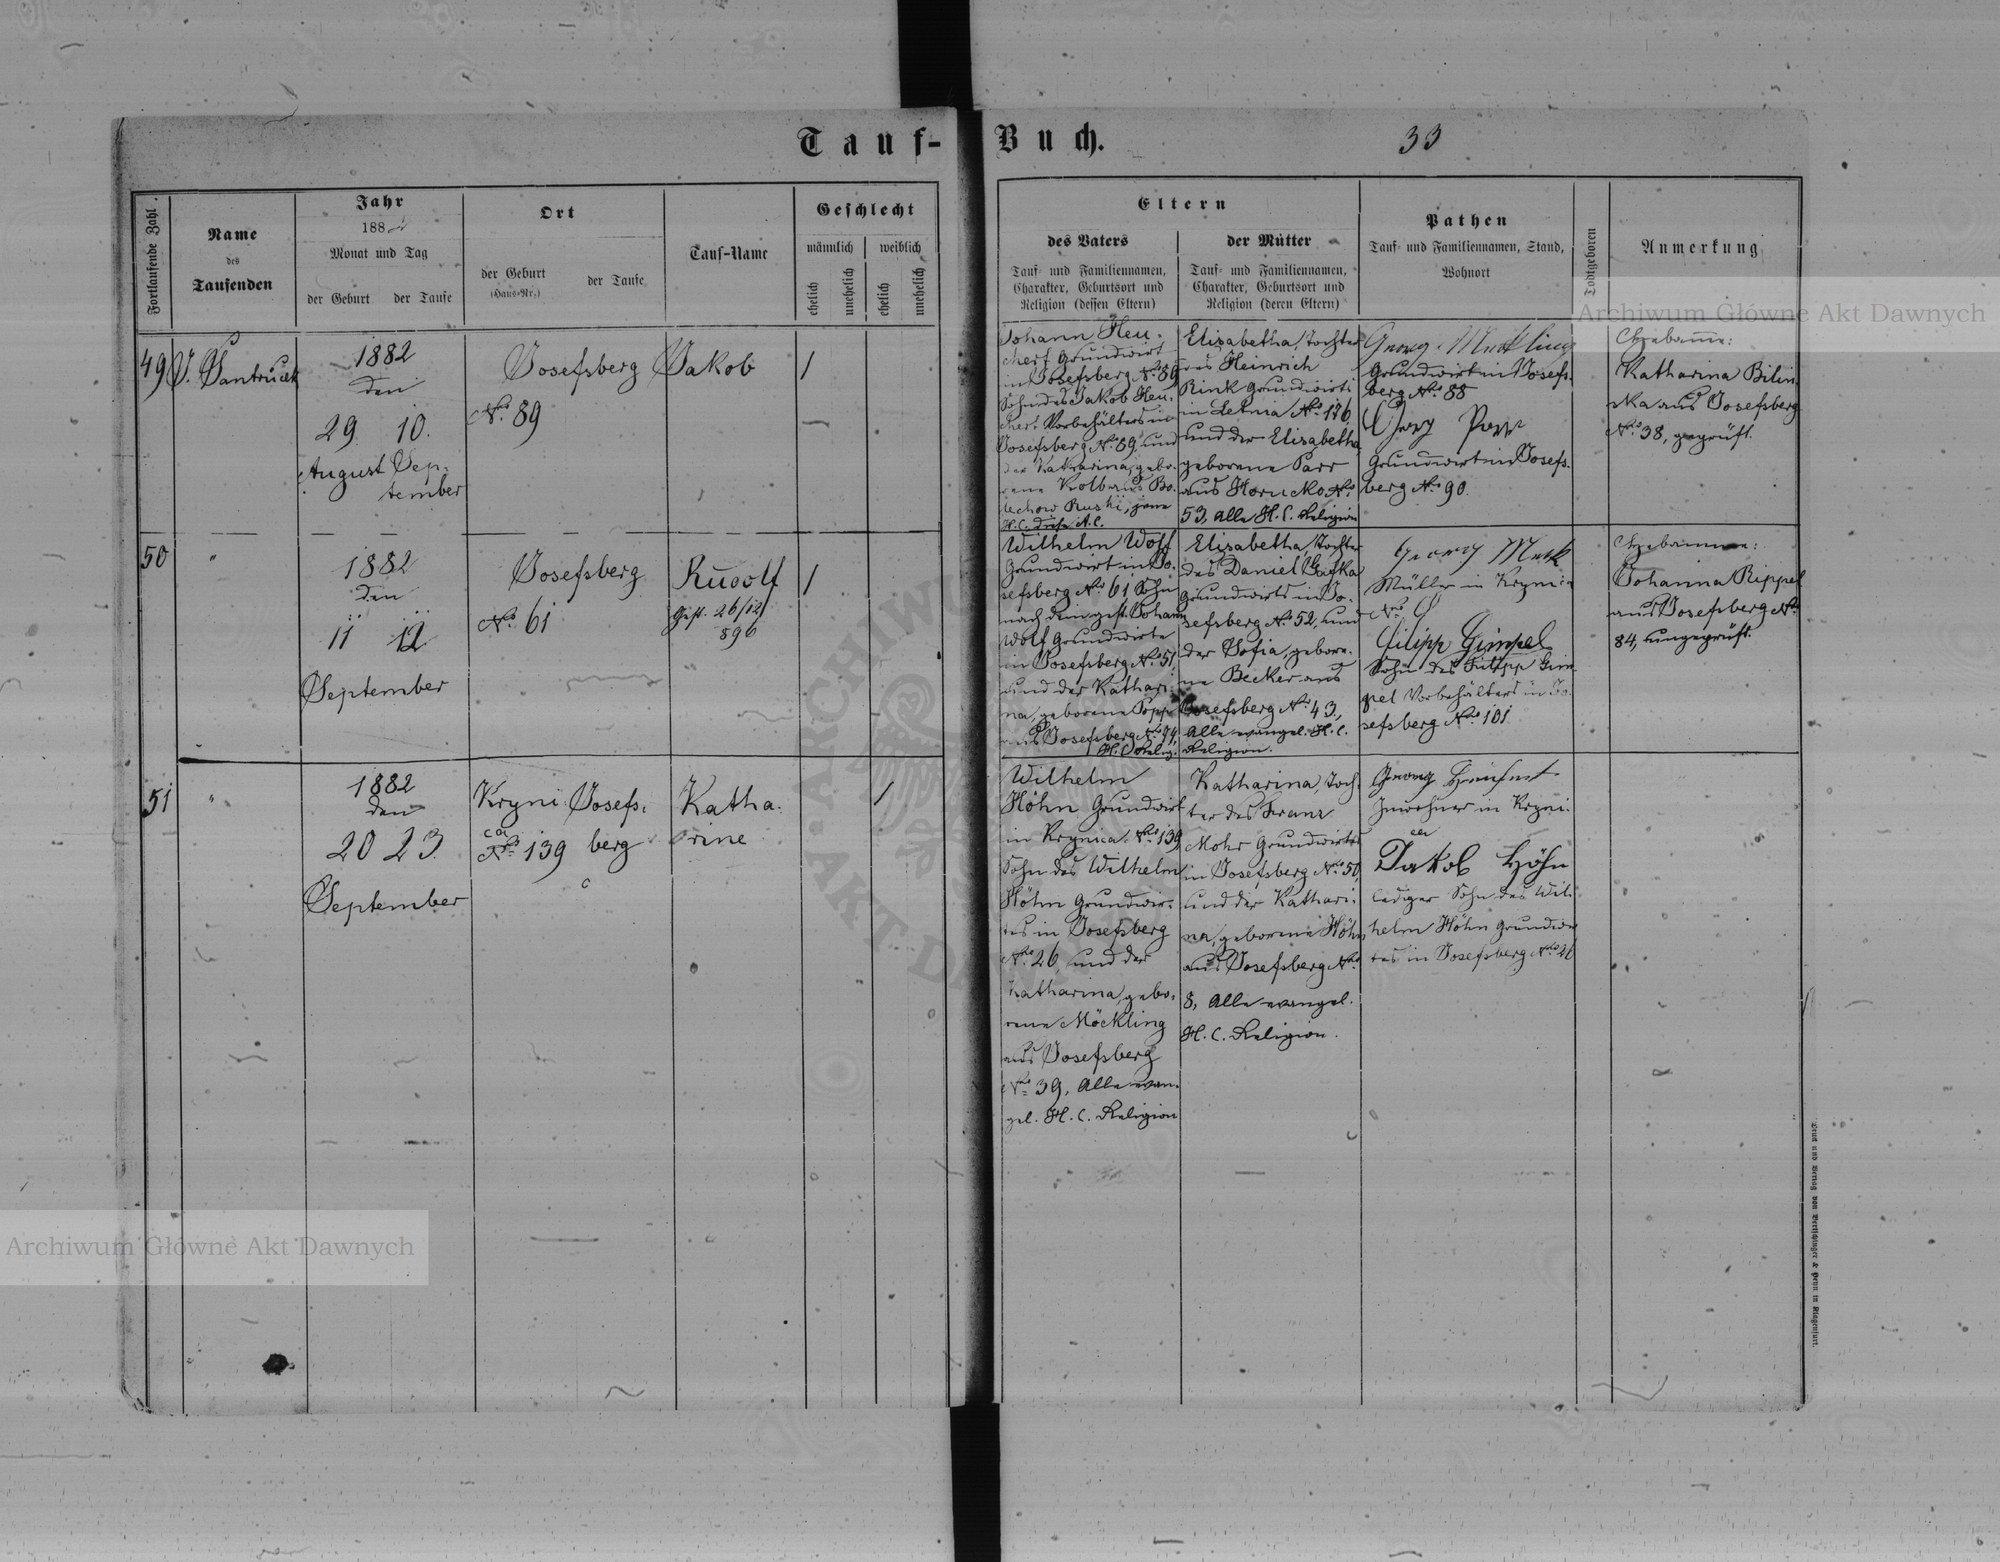 Tauf-
Buch.
33
Fortlaufende Zahl.
Name
des
Taufenden
Jahr
188
Monat und Tag
der Geburt
der Taufe
Ort
der Geburt
(Haus-Nr.)
der Taufe
Tauf-Name
Geschlecht
männlich
weiblich
ehelich
unehelich
ehelich
unehelich
Eltern
des Vaters
Tauf- und Familiennamen,
Charakter, Geburtsort und
Religion (dessen Eltern)
der Mütter
Tauf- und Familiennamen,
Charakter, Geburtsort und
Religion (deren Eltern)
Pathen
Tauf- und Familiennamen, Stand,
Wohnort
Todtgeboren
Anmerkung
49
1882
den
29. 10.
August Sep-
tember
Josefsberg
No. 89
Jakob
/
Johann Heu-
chert Grundwirt
in Josefsberg No. 89
Sohn des Jakob Heu-
chert Vorbehälters in
Josefsberg No. 89, und
der Katharina, gebo-
rene Kolb aus Bo-
lechow Ruski, jene
H.C. diese A.C.
Elisabetha, Tochter
des Heinrich
Rink Grundwirts
in No. 176,
und der Elisabetha
geborene Parr
aus No.
53, Alle H.C. Religion
Georg Meckling
Grundwirt in Josefs-
berg No. 88
Georg Popp
Grundwirt in Josefs-
berg No. 90.
Hebamme:
Katharina Bilin
ska aus Josefsberg
No. 38, geprüft.
50
"
1882
den
11 12
September
Josefsberg
No. 61
Rudolf
Gest. 26/12
896
/
Wilhelm Wolf
Grundwirt in Jo-
sefsberg No. 61, Sohn
nach dem gest. Johann
Wolf Grundwirte
in Josefsberg No. 51,
und der Kathari-
na, geborene Popp
aus Josefsberg No. 94,
H.C. Relig.
Elisabetha, Tochter
des Daniel
Grundwirts in Jo-
sefsberg No. 52, und
der Sofia, gebore-
ne Becker aus
Josefsberg No. 43,
Alle evangel. H.C.
Religion.
Georg Merk
Müller in Kryni
No.
Filipp Gimpel
Sohn des Filipp Gim
pel Vorbehälters in Jo-
sefsberg No. 101
Hebamme:
Johanna Rippel
aus Josefsberg No.
84, ungeprüft.
51
"
1882
den
20 23.
September
Kryni Josefs-
ca
No. 139 berg
Katha-
rine
/
Wilhelm
Höhn Grundwirt
in Krynica No. 139
Sohn des Wilhelm
Höhn Grundwir-
tes in Josefsberg
No. 26, und der
Katharina, gebo-
rene Möckling
aus Josefsberg
No. 39, Alle evan-
gel. H.C. Religion
Katharina, Toch-
ter des Franz
Mohr Grundwirtes
in Josefsberg No. 50,
und der Kathari-
na, geborene Höhn
aus Josefsberg No.
8, Alle evangel.
H.C. Religion.
Georg
Inwohner in Kryni-
ca
Jakob Höhn
lediger Sohn des Wil-
helm Höhn Grundwir
tes in Josefsberg No. 26
Druck und Verlag von Bertschinger & Heyn in Klagenfurt.
Archiwum Główne Akt Dawnych
Archiwum Główne Akt Dawnych